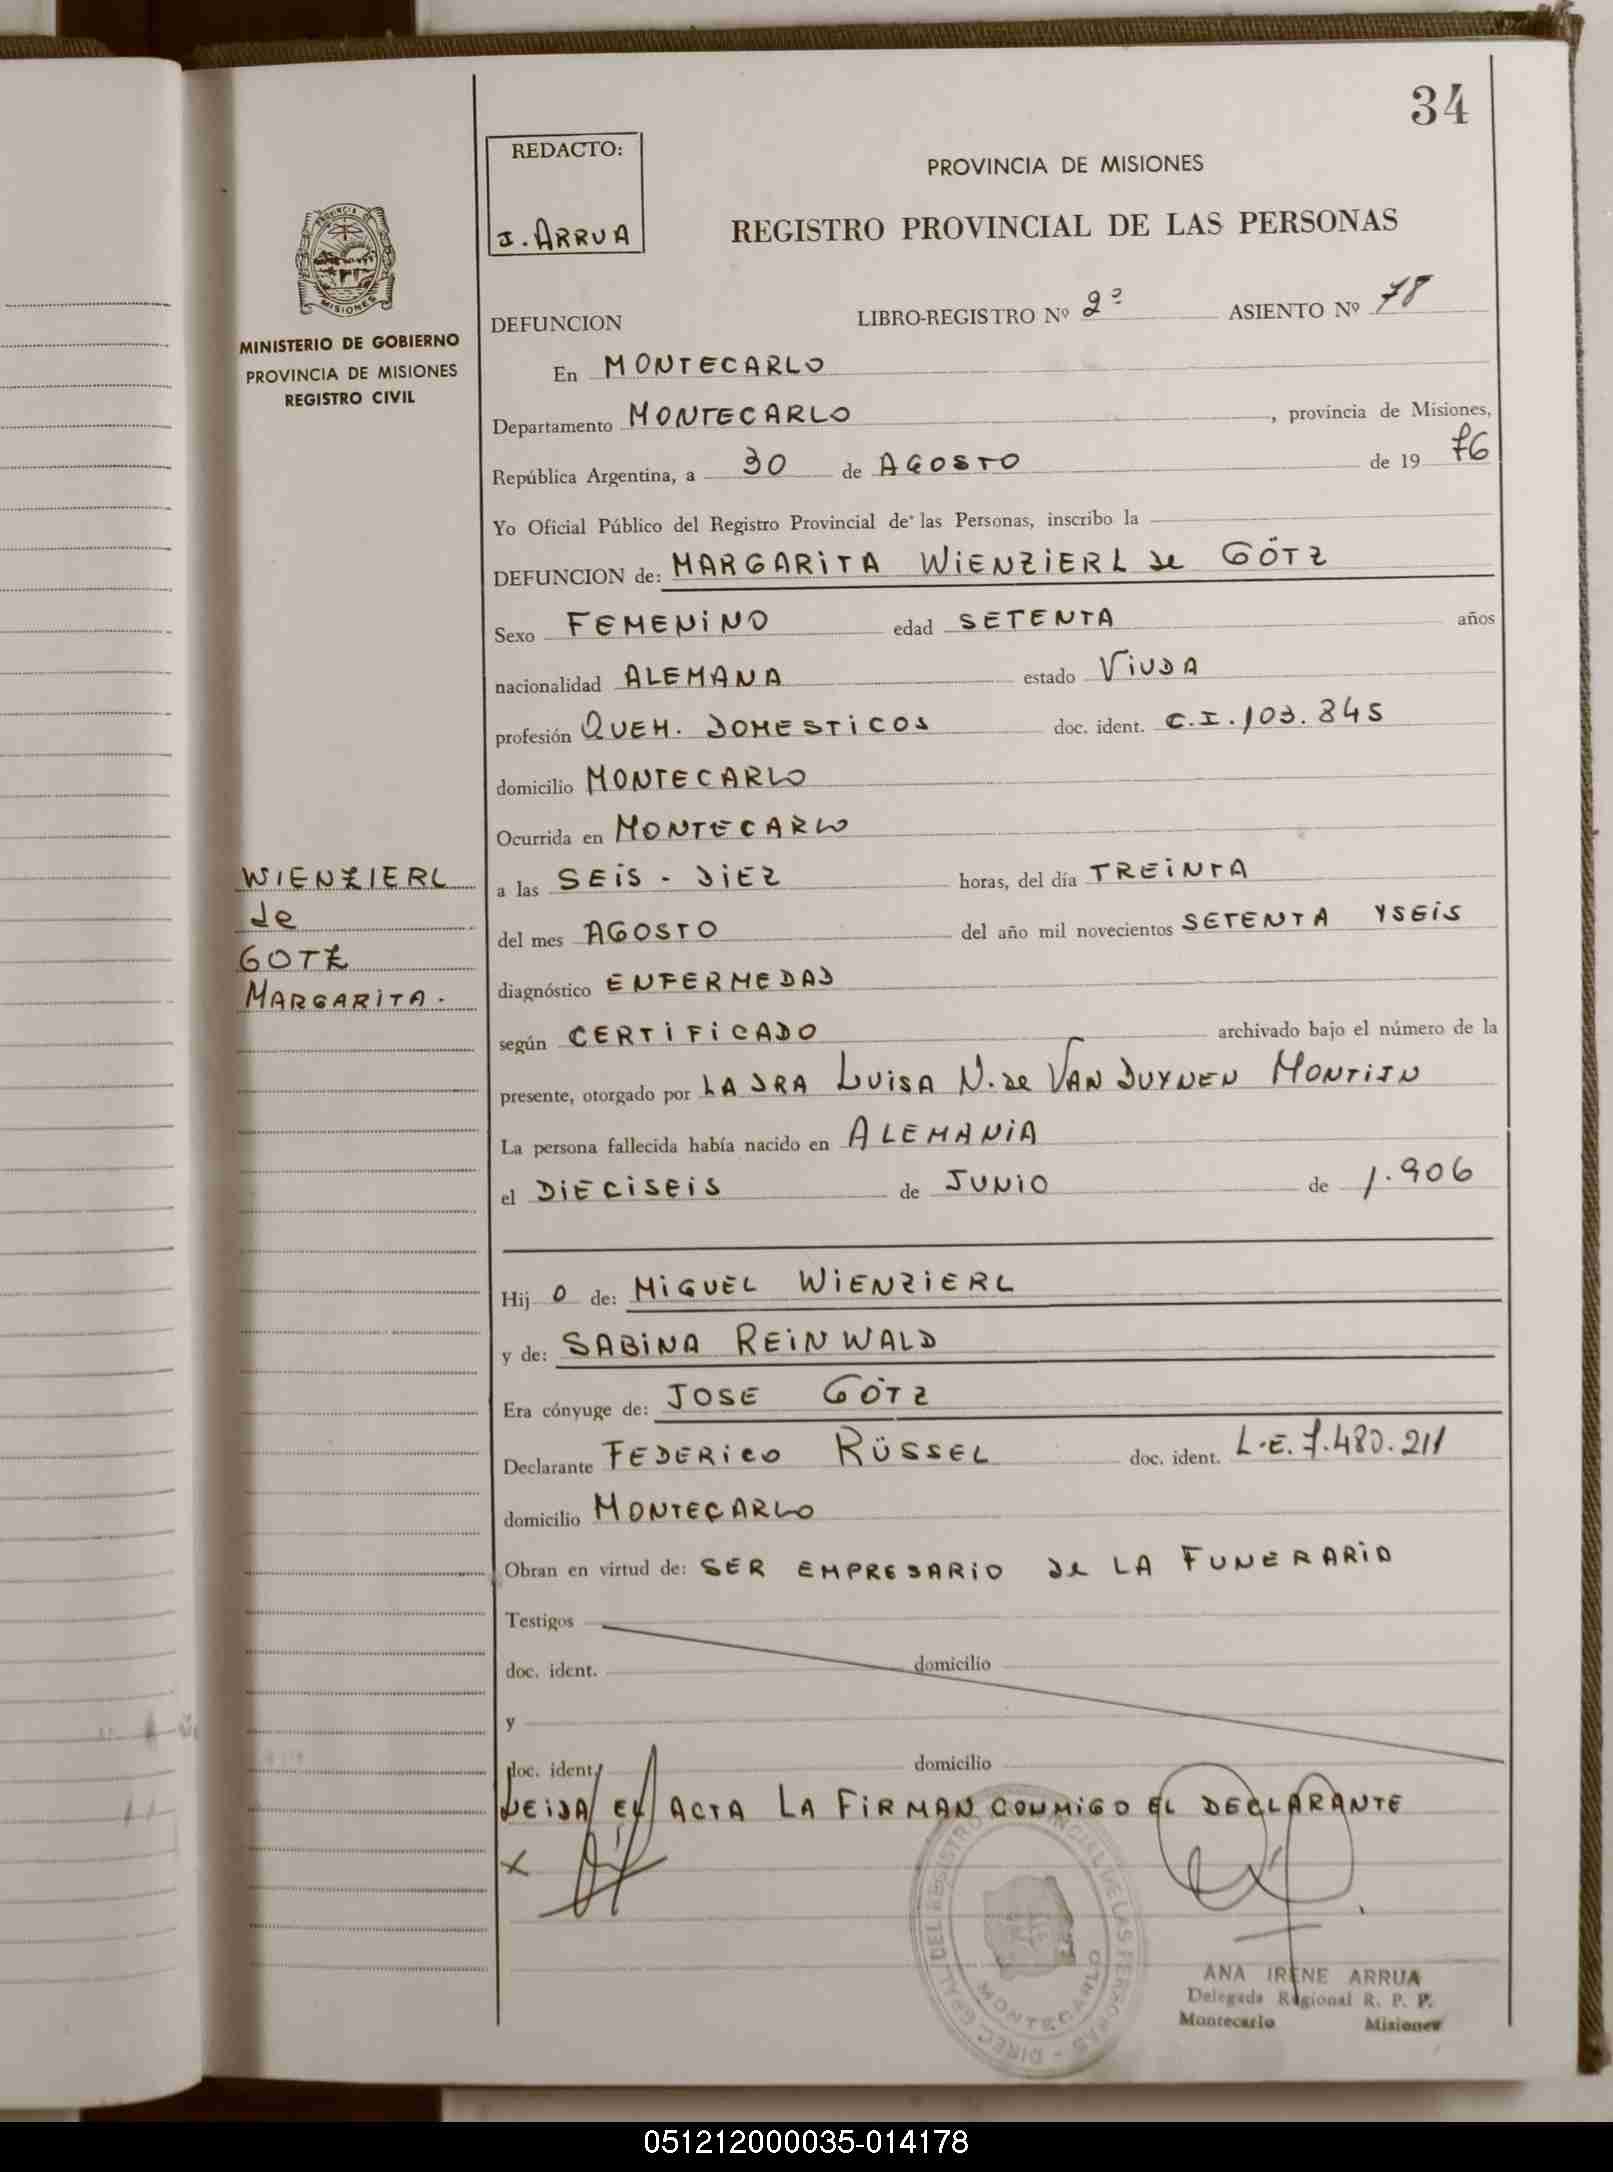 34
REDACTO:
I. ARRUA
PROVINCIA DE MISIONES
REGISTRO PROVINCIAL DE LAS PERSONAS
PROVINCIA DE
MISIONES
MINISTERIO DE GOBIERNO
PROVINCIA DE MISIONES
REGISTRO CIVIL
DEFUNCION LIBRO-REGISTRO Nº 2º ASIENTO Nº 78
En MONTECARLO
Departamento MONTECARLO , provincia de Misiones,
República Argentina, a 30 de AGOSTO de 19 76
Yo Oficial Público del Registro Provincial de las Personas, inscribo la
DEFUNCION de: MARGARITA WIENZIERL de GÖTZ
Sexo FEMENINO edad SETENTA años
nacionalidad ALEMANA estado VIUDA
profesión QUEH. DOMESTICOS doc. ident. C.I. 103.845
domicilio MONTECARLO
Ocurrida en MONTECARLO
a las SEIS - DIEZ horas, del día TREINTA
del mes AGOSTO del año mil novecientos SETENTA Y SEIS
diagnóstico ENFERMEDAD
según CERTIFICADO archivado bajo el número de la
presente, otorgado por LA DRA LUISA N. de VAN DUYNEN MONTIJN
La persona fallecida había nacido en ALEMANIA
el DIECISEIS de JUNIO de 1.906
WIENZIERL
de
GOTZ
MARGARITA.
Hij o de: MIGUEL WIENZIERL
y de: SABINA REINWALD
Era cónyuge de: JOSE GÖTZ
Declarante FEDERICO RÜSSEL doc. ident. L.E. 7.480.211
domicilio MONTECARLO
Obran en virtud de: SER EMPRESARIO de LA FUNERARIA
Testigos
doc. ident. domicilio
y
doc. ident. domicilio
LEIDA EL ACTA LA FIRMAN CONMIGO EL DECLARANTE
X
DIREC. GRAL. DEL REGISTRO PROVINCIAL DE LAS PERSONAS
MONTECARLO
ANA IRENE ARRUA
Delegada Regional R. P. P.
Montecarlo Misiones
051212000035-014178